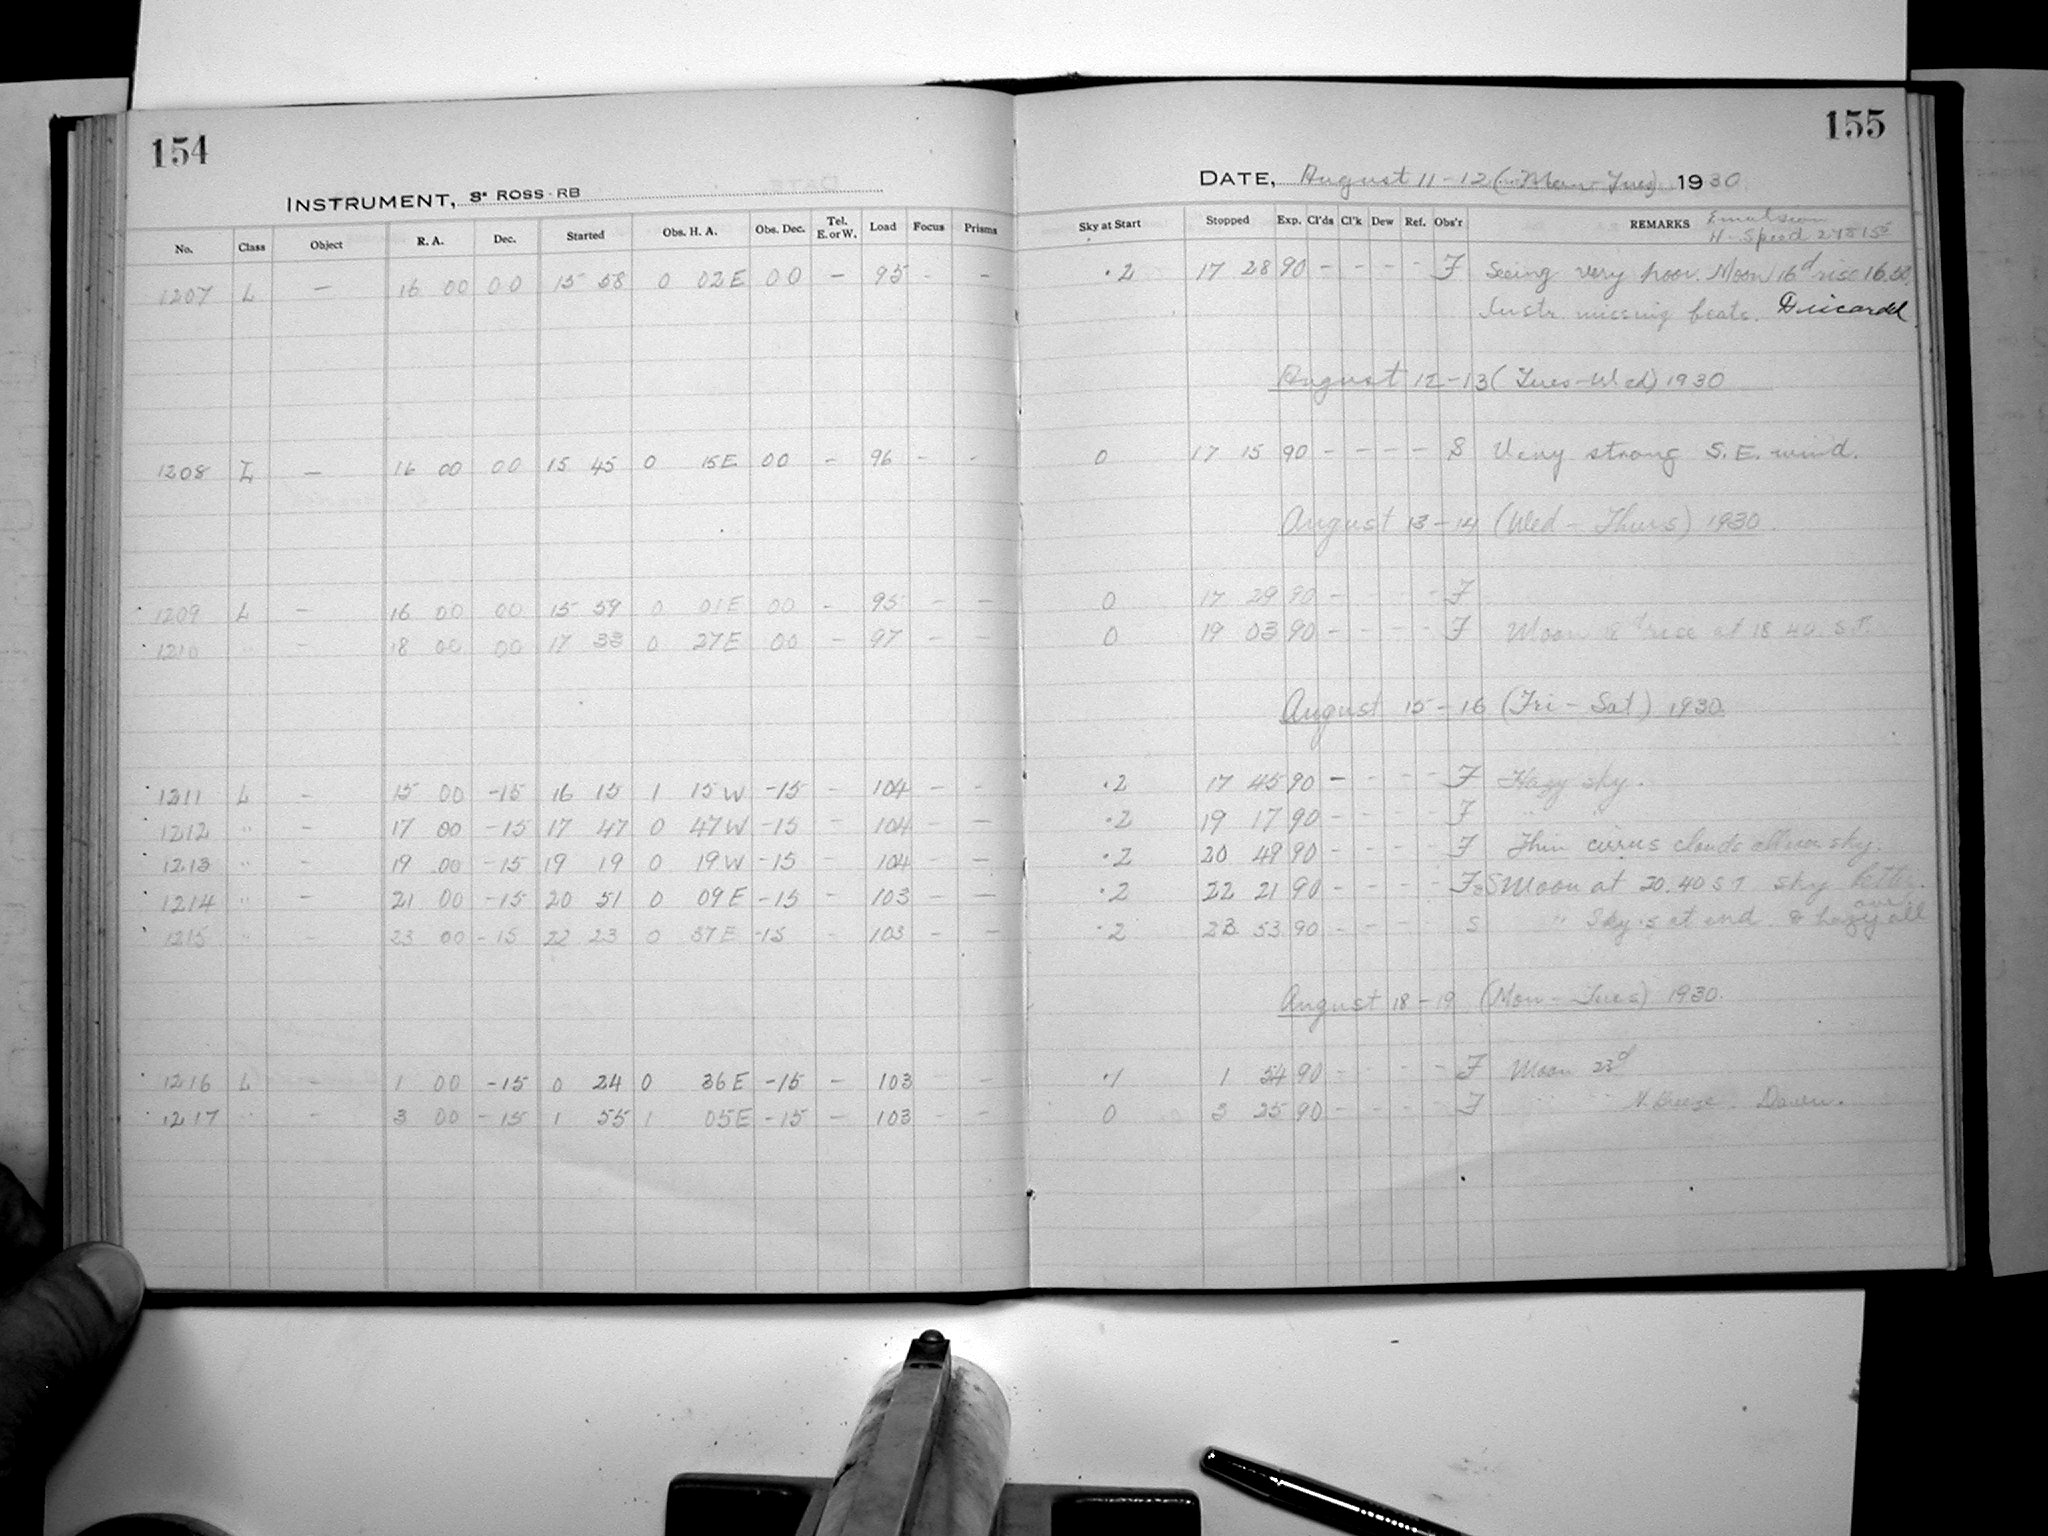 154
INSTRUMENT, 3" ROSS-RB
No. Class Object R. A. Dec. Started Obs. H. A. Obs. Dec. Tel. E. or W. Load Focus Prisms
1207 L — 16 00 00 15 58 0 02 E 00 — 95 - —
1208 L — 16 00 00 15 45 0 15 E 00 - 96 - -
1209 L — 16 00 00 15 59 0 01 E 00 - 95 - —
1210 " — 18 00 00 17 33 0 27 E 00 - 97 - —
1211 L - 15 00 -15 16 15 1 15 W -15 - 104 - -
1212 " - 17 00 -15 17 47 0 47 W -15 - 104 - —
1213 " - 19 00 -15 19 19 0 19 W -15 - 104 - —
1214 " - 21 00 -15 20 51 0 09 E -15 - 103 - —
1215 " - 23 00 -15 22 23 0 37 E -15 - 103 - —
1216 L - 1 00 -15 0 24 0 36 E -15 - 103 - —
1217 " - 3 00 -15 1 55 1 05 E -15 - 103 - —
155
DATE, August 11-12 (Mon-Tues) 1930
Sky at Start Stopped Exp. Cl'ds Cl'k Dew Ref. Obs'r REMARKS Emulsion
H. Speed
.2 17 28 90 - - - - F Seeing very poor. Moon 16d rise 16.50
Instr missing beats. Discarded
August 12-13 (Tues-Wed) 1930
0 17 15 90 - - - - S Very strong S.E. wind.
August 13-14 (Wed-Thurs) 1930.
0 17 29 90 - - - - F
0 19 03 90 - - - - F Moon 18d rise at 18 40 S.T.
August 15-16 (Fri-Sat) 1930.
.2 17 45 90 - - - - F Hazy sky.
.2 19 17 90 - - - - F " "
.2 20 49 90 - - - - F Thin cirrus clouds all over sky.
.2 22 21 90 - - - - F&S Moon at 20.40 ST sky
.2 23 53 90 - - - S " Sky .5 at end & hazy all over
August 18-19 (Mon-Tues) 1930.
.1 1 54 90 - - - - F Moon 23d
0 3 25 90 - - - - F " " N. Breeze. Dawn.